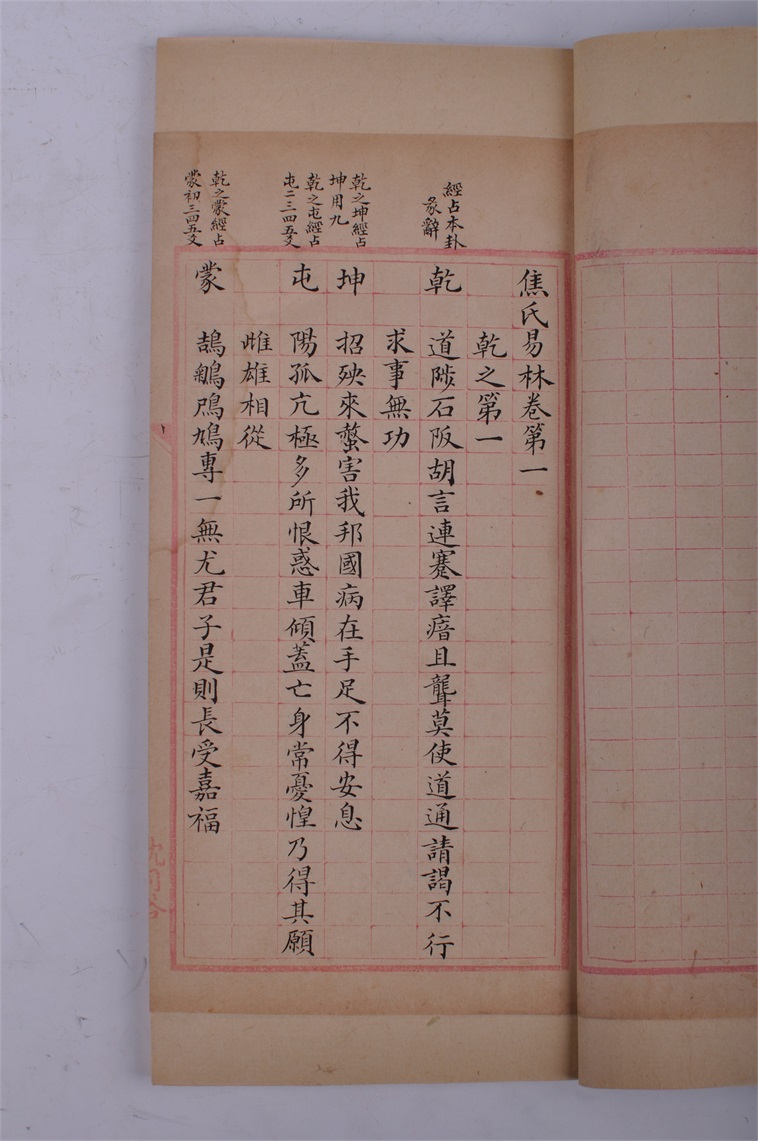 焦氏易林卷第一
乾之第一
經占本卦
彖辭
乾 道陟石阪胡言連蹇譯瘖且聾莫使道通請謁不行
求事無功
乾之坤經占
坤用九
坤 招殃來螫害我邦國病在手足不得安息
乾之屯經占
屯二三四五爻
屯 陽孤亢極多所恨惑車傾蓋亡身常憂惶乃得其願
雌雄相從
乾之蒙經占
蒙初三四五爻
蒙 鵠鵴鳲鳩專一無尤君子是則長受嘉福